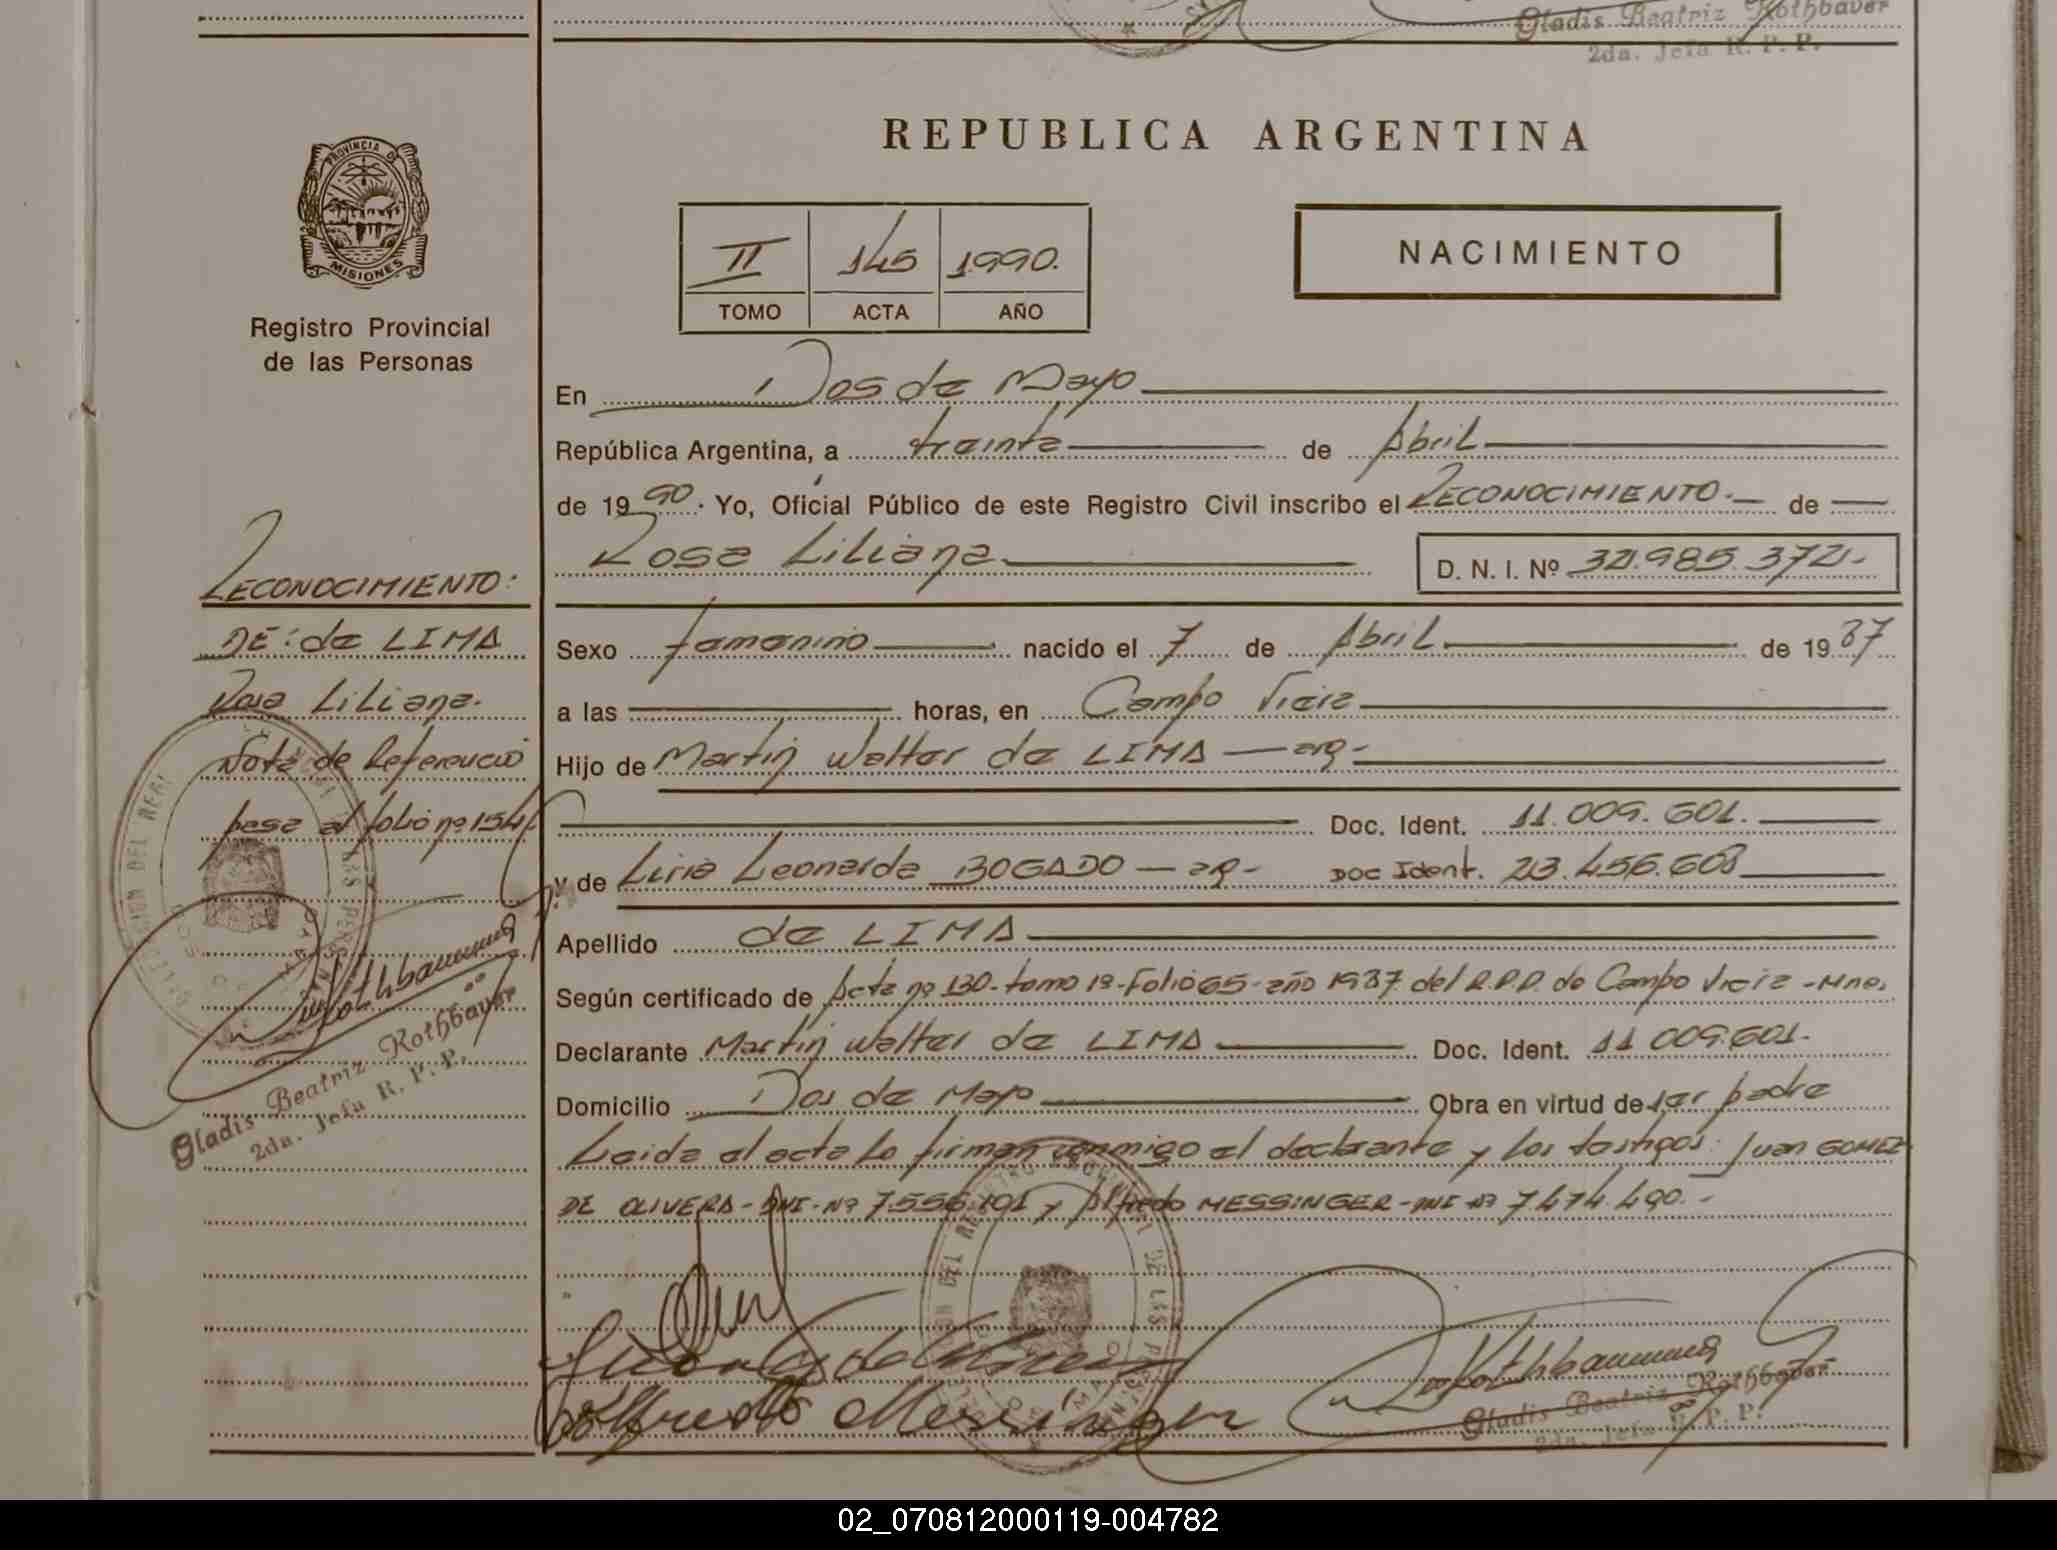 Gladis Beatriz Rothbauer
2da. Jefa R. P. P.
REPUBLICA ARGENTINA
PROVINCIA DE
MISIONES
Registro Provincial
de las Personas
II 145 1990.
TOMO ACTA AÑO
NACIMIENTO
En Dos de Mayo
República Argentina, a treinta de Abril
de 1990. Yo, Oficial Público de este Registro Civil inscribo el RECONOCIMIENTO.- de
Rosa Liliana D. N. I. Nº
Sexo femenino nacido el 7 de Abril de 1987
a las horas, en Campo Viera
Hijo de Martin Walter de LIMA — arg-
Doc. Ident. 11.009.601.
y de Liria Leonarda BOGADO — arg- Doc Ident. 23.456.608
Apellido de LIMA
Según certificado de Acta nº 130- tomo 1º- Folio 65- año 1987 del R.P.P. de Campo Viera -Mnes.
Declarante Martin Walter de LIMA Doc. Ident. 11 009.601.
Domicilio Dos de Mayo Obra en virtud de ser padre
Leida el acta la firman conmigo el declarante y los testigos: Juan GOMEZ
DE OLIVERA- DNI- Nº 7.556.101 y Alfredo MESSINGER- DNI Nº 7.474.490.-
Alfredo Messinger
Gladis Beatriz Rothbauer
2da. Jefa R. P. P.
RECONOCIMIENTO:
DE: de LIMA
Rosa Liliana.
Nota de Referencia
pasa al folio nº 154
Gladis Beatriz Rothbauer
2da. Jefa R. P. P.
02_070812000119-004782